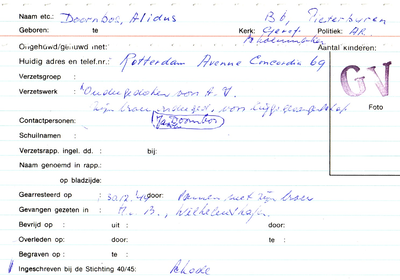 Naam etc.: Doornbos, Alidus B6, Pieterburen
Geboren: te Kerk: Geref. Politiek: AR.
Ongehuwd/gehuwd met: Aantal kinderen:
Huidig adres en telef.nr.: Rotterdam Avenue Concordia 69
Verzetsgroep : GV
Verzetswerk : Ondergedoken von A.V.
Zijn broer
Foto
Contactpersonen: Jan Doornbos
Schuilnamen :
Verzetsrapp. ingel. dd. : bij:
Naam genoemd in rapp.:
op bladzijde:
Gearresteerd op : door: samen met zijn broer
Gevangen gezeten in : H.v.B., Wilhelmshafen
Bevrijd op : uit : door:
Overleden op: door: te :
Begraven op : te :
Ingeschreven bij de Stichting 40/45: